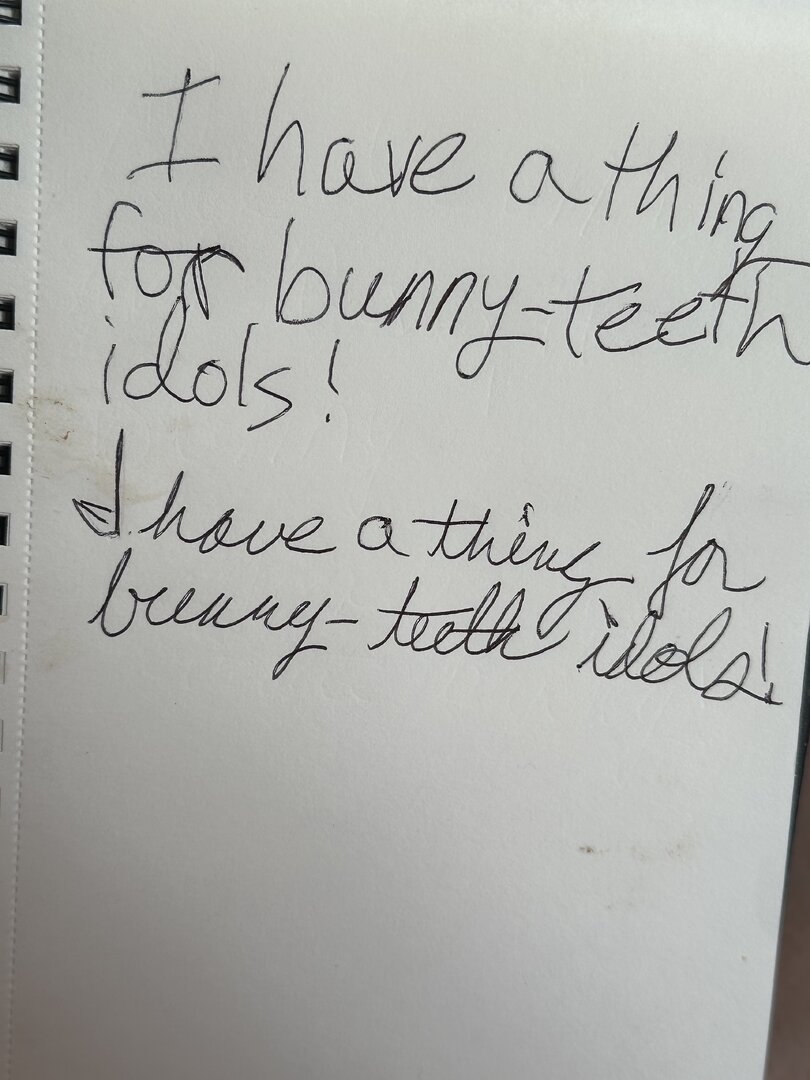 I have a thing
for bunny-teeth
idols!
I have a thing for
bunny-teeth idols!